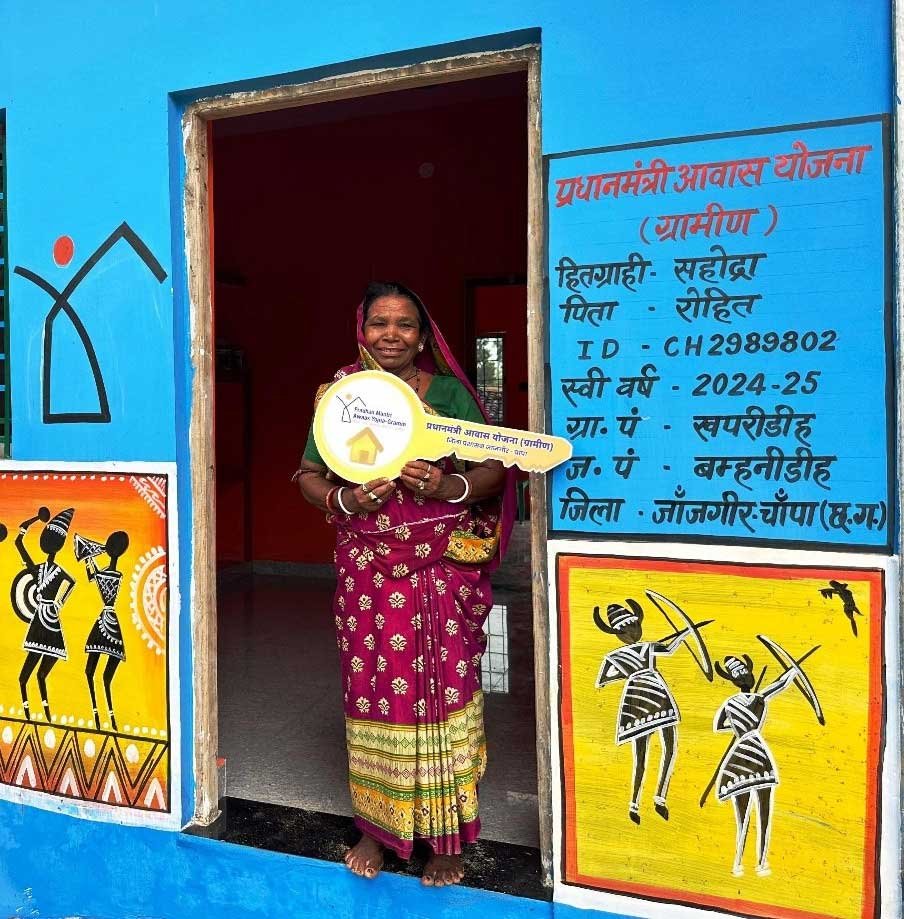 प्रधानमंत्री आवास योजना
(ग्रामीण)
हितग्राही- सहोद्रा
पिता - रोहित
ID - CH2989802
स्वी वर्ष - 2024-25
ग्रा. पं - खपरीडीह
ज. पं - बम्हनीडीह
जिला - जाँजगीर-चाँपा (छ.ग.)
Pradhan Mantri
Awaas Yojna-Gramin
प्रधानमंत्री आवास योजना (ग्रामीण)
जिला पंचायत जांजगीर - चांपा